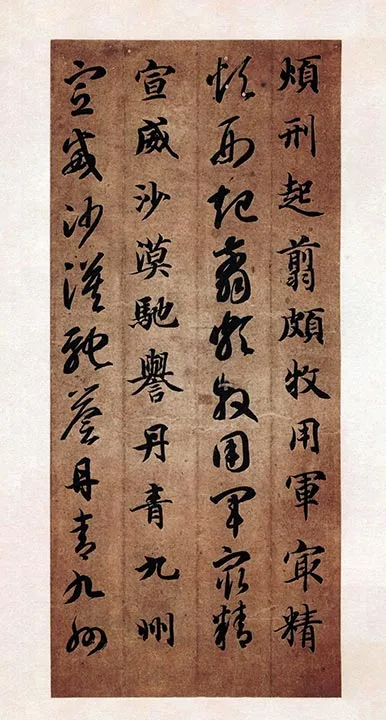 煩刑起翦頗牧用軍冣精
煩刑起翦頗牧用軍冣精
宣威沙漠馳譽丹青九州
宣威沙漠馳譽丹青九州